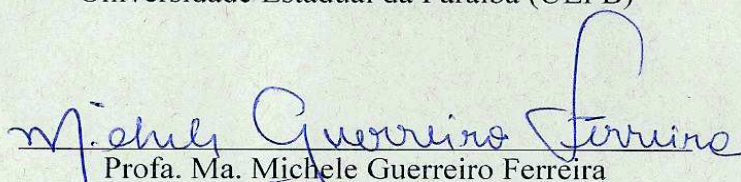 Universidade Estadual da Paraíba (UEPB)
Michele Guerreiro Ferreira
Profa. Ma. Michele Guerreiro Ferreira